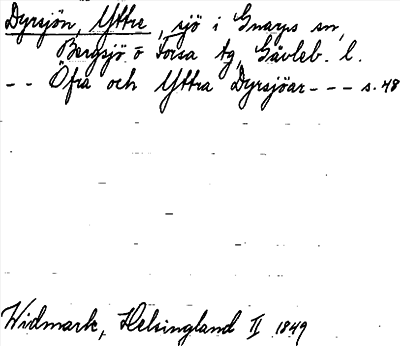 Dyrsjön, Yttre, sjö i Gnarps sn,
Bergsjö o Forsa tg, Gävleb. l.
-- Öfra och Yttra Dyrsjöar --- s. 48
Widmark, Helsingland II 1849